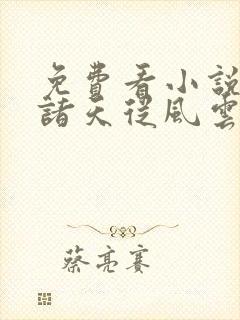 免費看小說
諸天從風雲
蔡亮賽